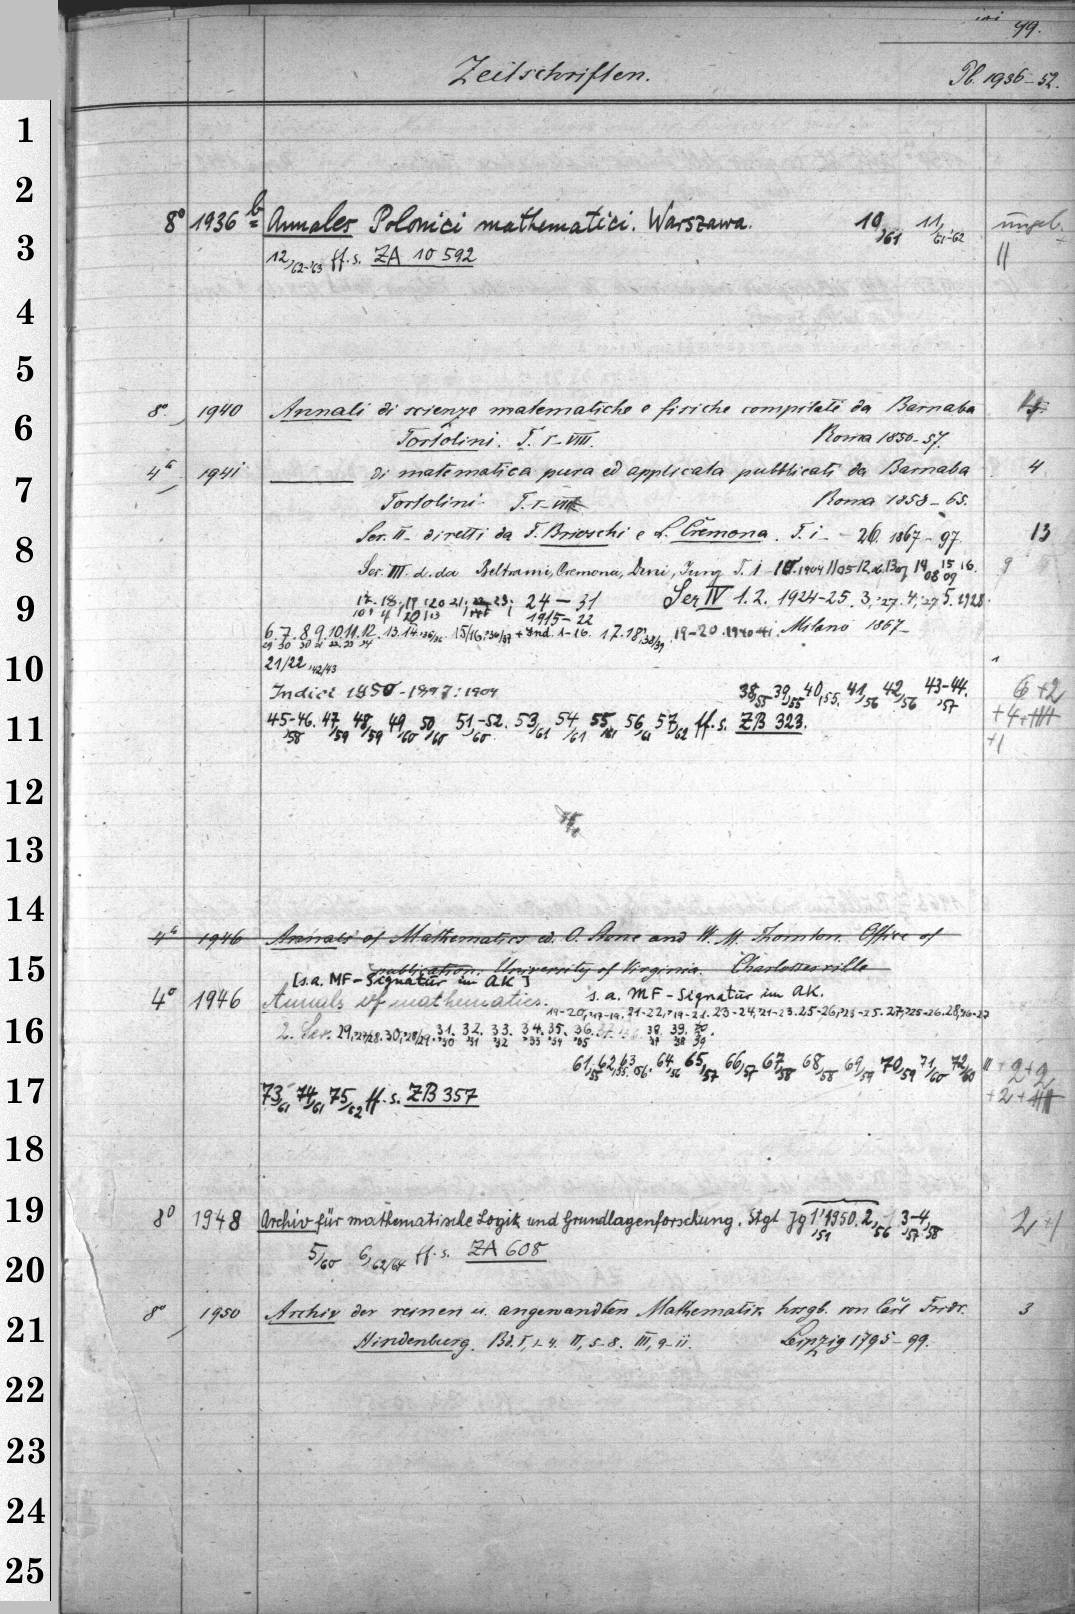 99.
Zeitschriften.
Pb. 1936-52.
1
2
8° 1936 b Annales Polonici mathematici. Warszawa. 10/61 11/61-62 ungeb.
3
12/62-'63 ff. s. ZA 10 592 ||
4
5
8° 1940 Annali di scienze matematiche e fisiche compilati da Barnaba
6
Tortolini. T. I-VIII. Roma 1850-57.
4° 1941 ——— di matematica pura ed applicata pubblicati da Barnaba 4
7
Tortolini. T. I- Roma 1858-65.
8
Ser. II. diretti da F. Brioschi e L. Cremona. T. 1 - 26. 1867-97 13
Ser. III. d. da Beltrami, Cremona, Dini, Jung T. 1- 9
9
24-31 Ser IV 1.2. 1924-25. 3,'27. 4,'27 5. 1928.
1915-22
6. 7. 8. 9. 10. 11. 12. 13. 14. 15/16. + Ind. 1-16. 17. 18. 19-20. 1940-41 Milano 1867-
10
21/22,'42/43
Indici 1850-1897: 1904 38/55 39/55 40/55. 41/56 42/56 43-44./57 6+2
11
45-46./58 47/59 48/59 49/60 50/60 51-52./60 53/61 54/61 55/61 56/61 57/62 ff. s. ZB 323. +4+
+1
12
13
14
4° 1946 Annals of Mathematics ed. O. Stone and W. M. Thornton. Office of
15
publication. University of Virginia. Charlottesville
[s.a. MF-Signatur im AK]
4° 1946 Annals of mathematics. s. a. MF-Signatur im AK.
16
2. Ser. 29,'27/28. 30,'28/29. 31./30 32./31 33./32 34./33 35./34 36./35 38./37 39./38
61/55 62/55 63/56. 64/56 65/57 66/57 67/58 68/58 69/59 70/59 71/60 72/60 +2+2
17
73/61 74/61 75/62 ff. s. ZB 357 +2+
18
19
8° 1948 Archiv für mathematische Logik und Grundlagenforschung. Stgt Jg 1'1950/51. 2/56 3-4/57/58 2+1
20
5/60 6/62/64 ff. s. ZA 608
8° 1950 Archiv der reinen u. angewandten Mathematik. hrsgb. von Carl Friedr. 3
21
Hindenburg. Bd. I, 1-4. II, 5-8. III, 9-11. Leipzig 1795-99.
22
23
24
25